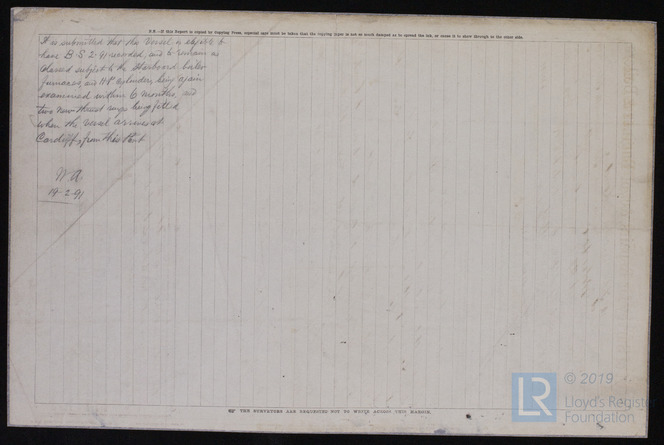 N.B.—If this Report is copied by Copying Press, especial care must be taken that the copying paper is not so much damped as to spread the ink, or cause it to show through to the other side.
It is submitted that this Vessel is eligible to
have B.S 2.91 recorded, and to remain as
classed subject to the Starboard boiler
furnaces, and H.P cylinders being again
examined within 6 months, and
two new thrust rings being fitted
when the vessel arrives at
Cardiff, from this Port
W.A
19.2.91
THE SURVEYORS ARE REQUESTED NOT TO WRITE ACROSS THIS MARGIN.
LR
© 2019
Lloyd's Register
Foundation